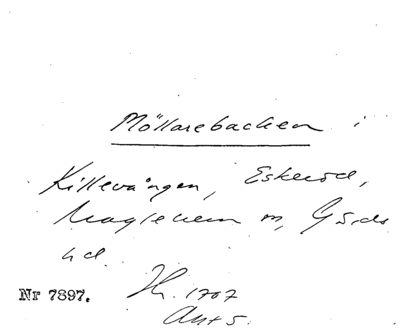 Möllarebacken i
Killevången, Eskeröd,
Maglehem sn, Gärds
hd.
Nr 7897. Th. 1707
Akt 5.